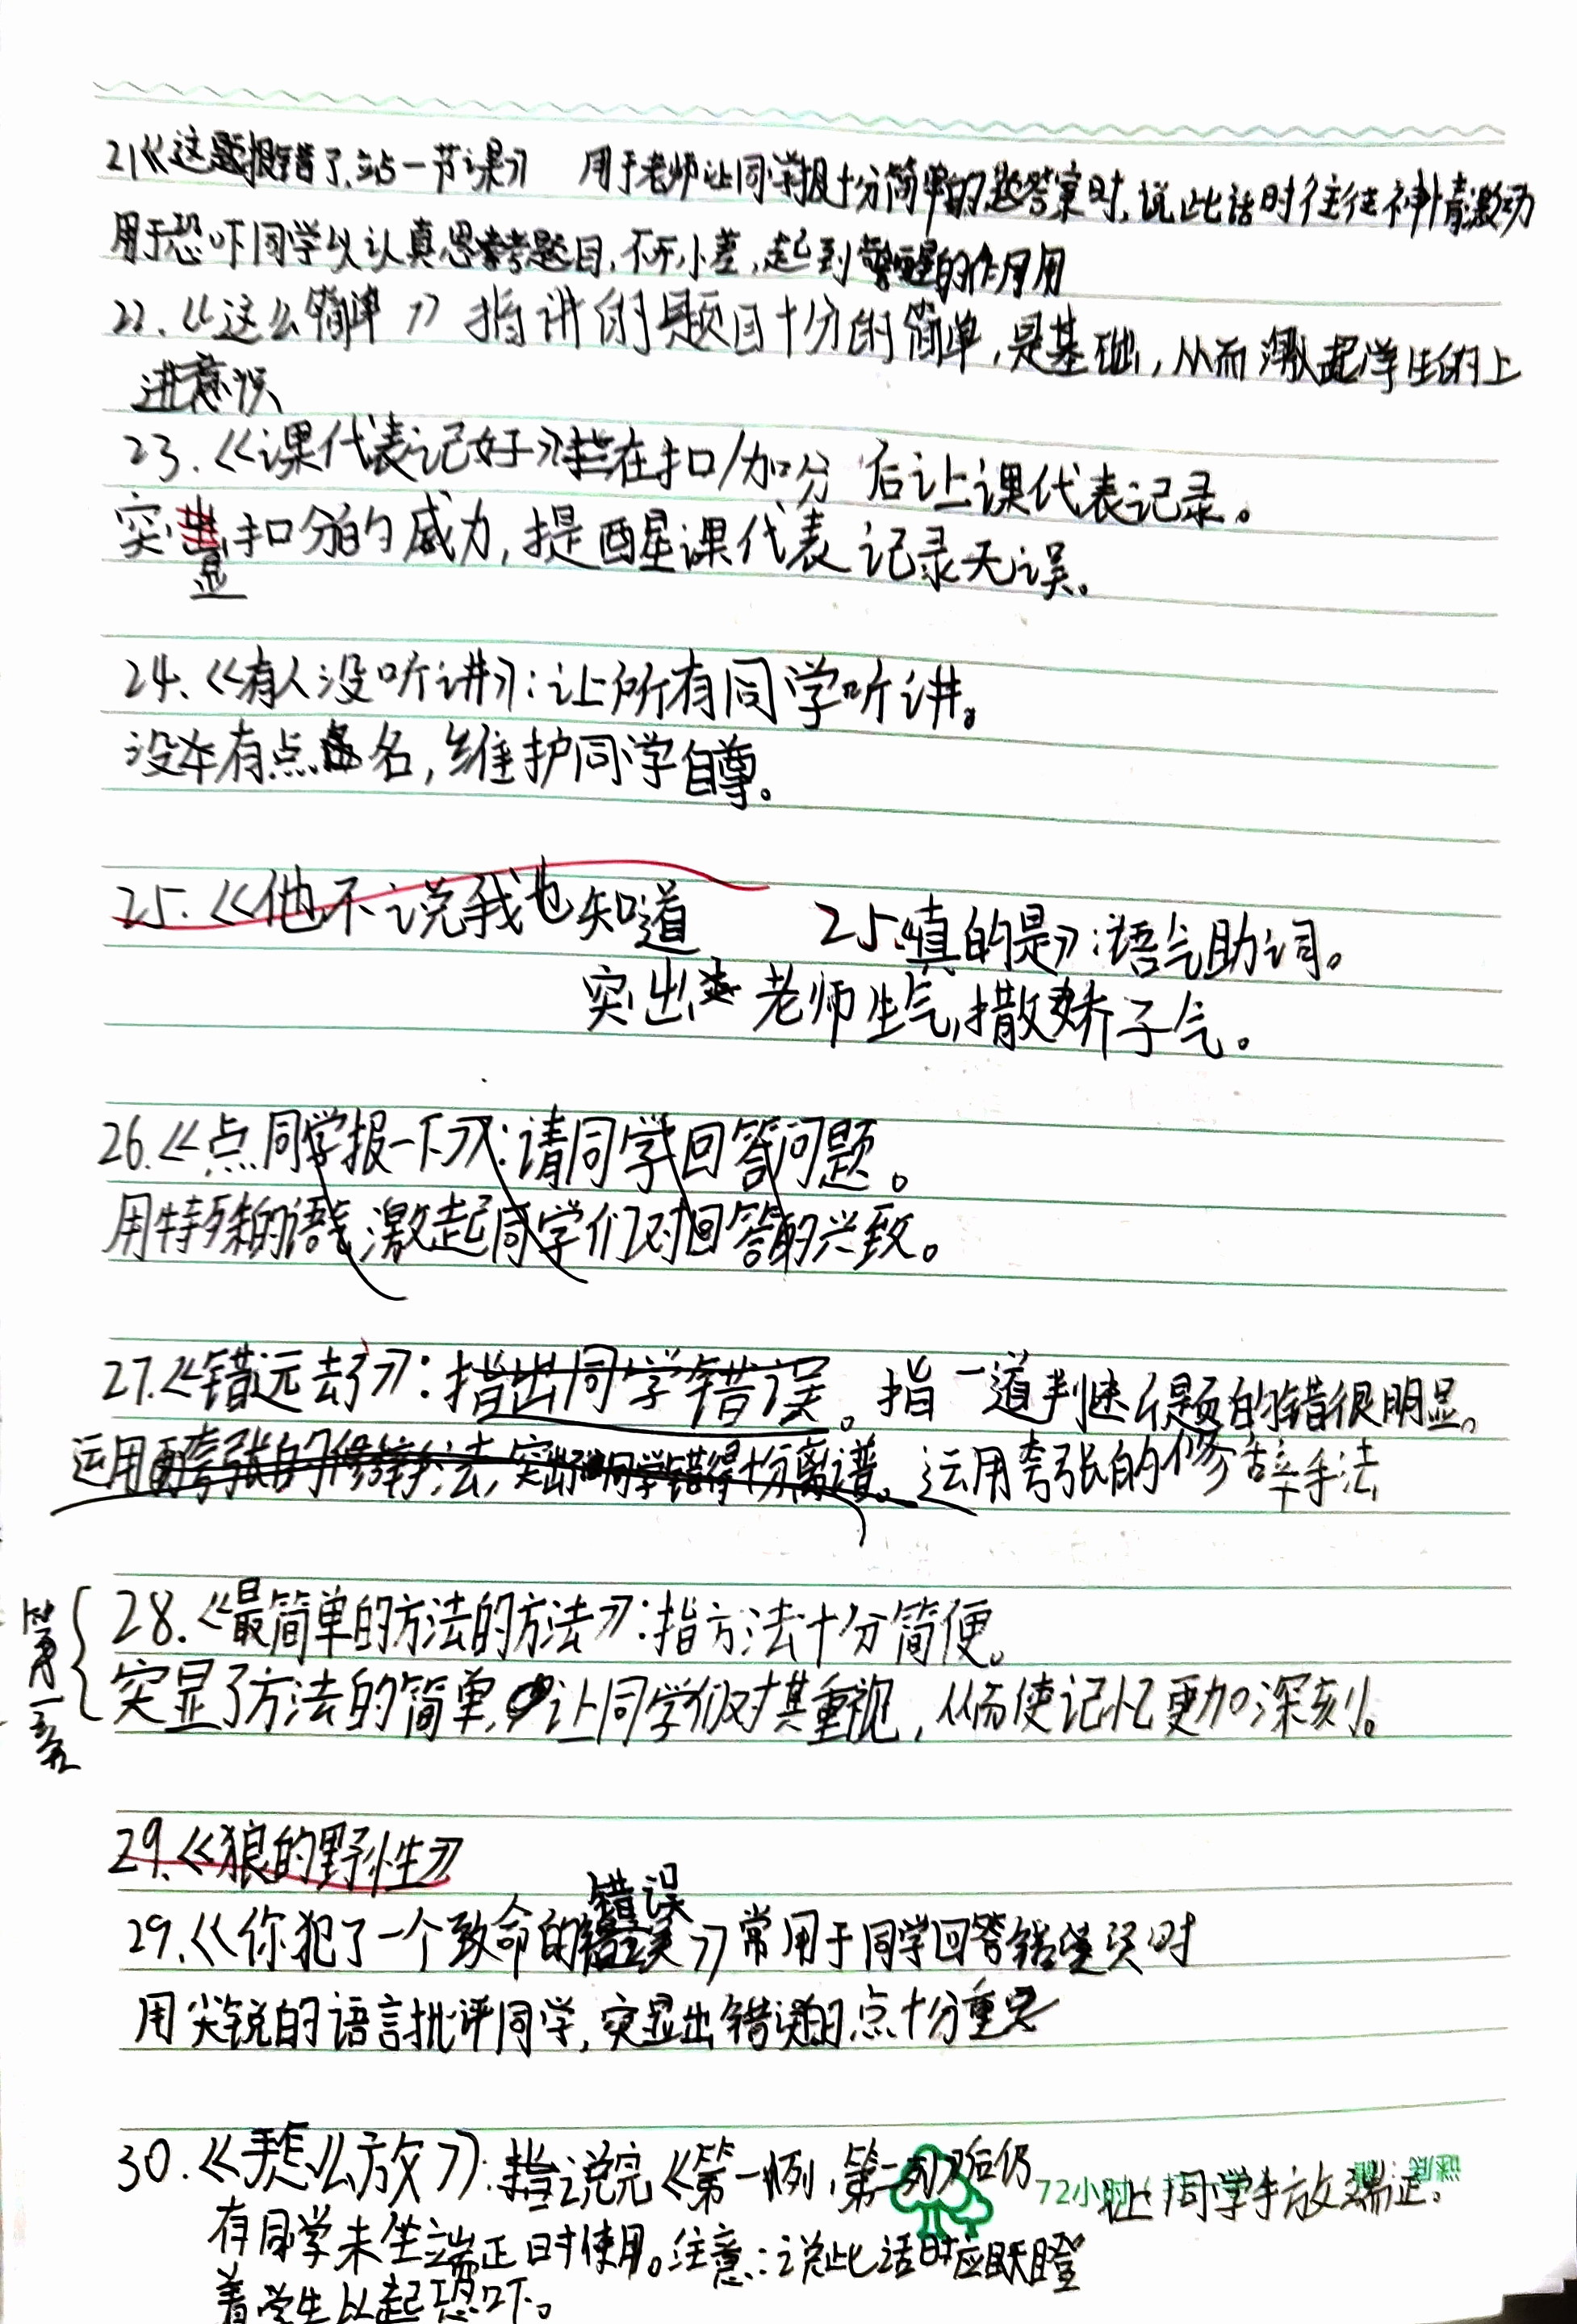 21《这题报错了,站一节课》 用于老师让同学报十分简单的题答案时,说此话时往往神情激动
用于恐吓同学以认真思考题目,不开小差,起到警醒的作用
22.《这么简单》指讲的题目十分的简单,是基础,从而激起学生的上
进意识
23.《课代表记好》在扣/加分后让课代表记录。
突显扣分的威力,提醒课代表记录无误。
24.《有人没听讲》:让所有同学听讲。
没有点名,维护同学自尊。
25.《他不说我也知道 25.《真的是》:语气助词。
突出 老师生气,撒娇子气。
26.《点同学报一下》:请同学回答问题。
用特殊的语气激起同学们对回答的兴致。
27.《错远去了》:指出同学错误。指一道判速个题的错很明显。
运用夸张的修辞手法,突出同学错得十分离谱。运用夸张的修辞手法
第一章
28.《最简单的方法的方法》:指方法十分简便。
突显了方法的简单,让同学们对其重视,从而使记忆更加深刻。
29.《狼的野性》
错误
29.《你犯了一个致命的》常用于同学回答错误时
用尖锐的语言批评同学,突显出错误的点十分重要
30.《手怎么放》:说完《第一例,第一列》后仍 72小时 让同学手放端正。
有同学未坐端正时使用。注意:说此话时应眼瞪
着学生以起恐吓。